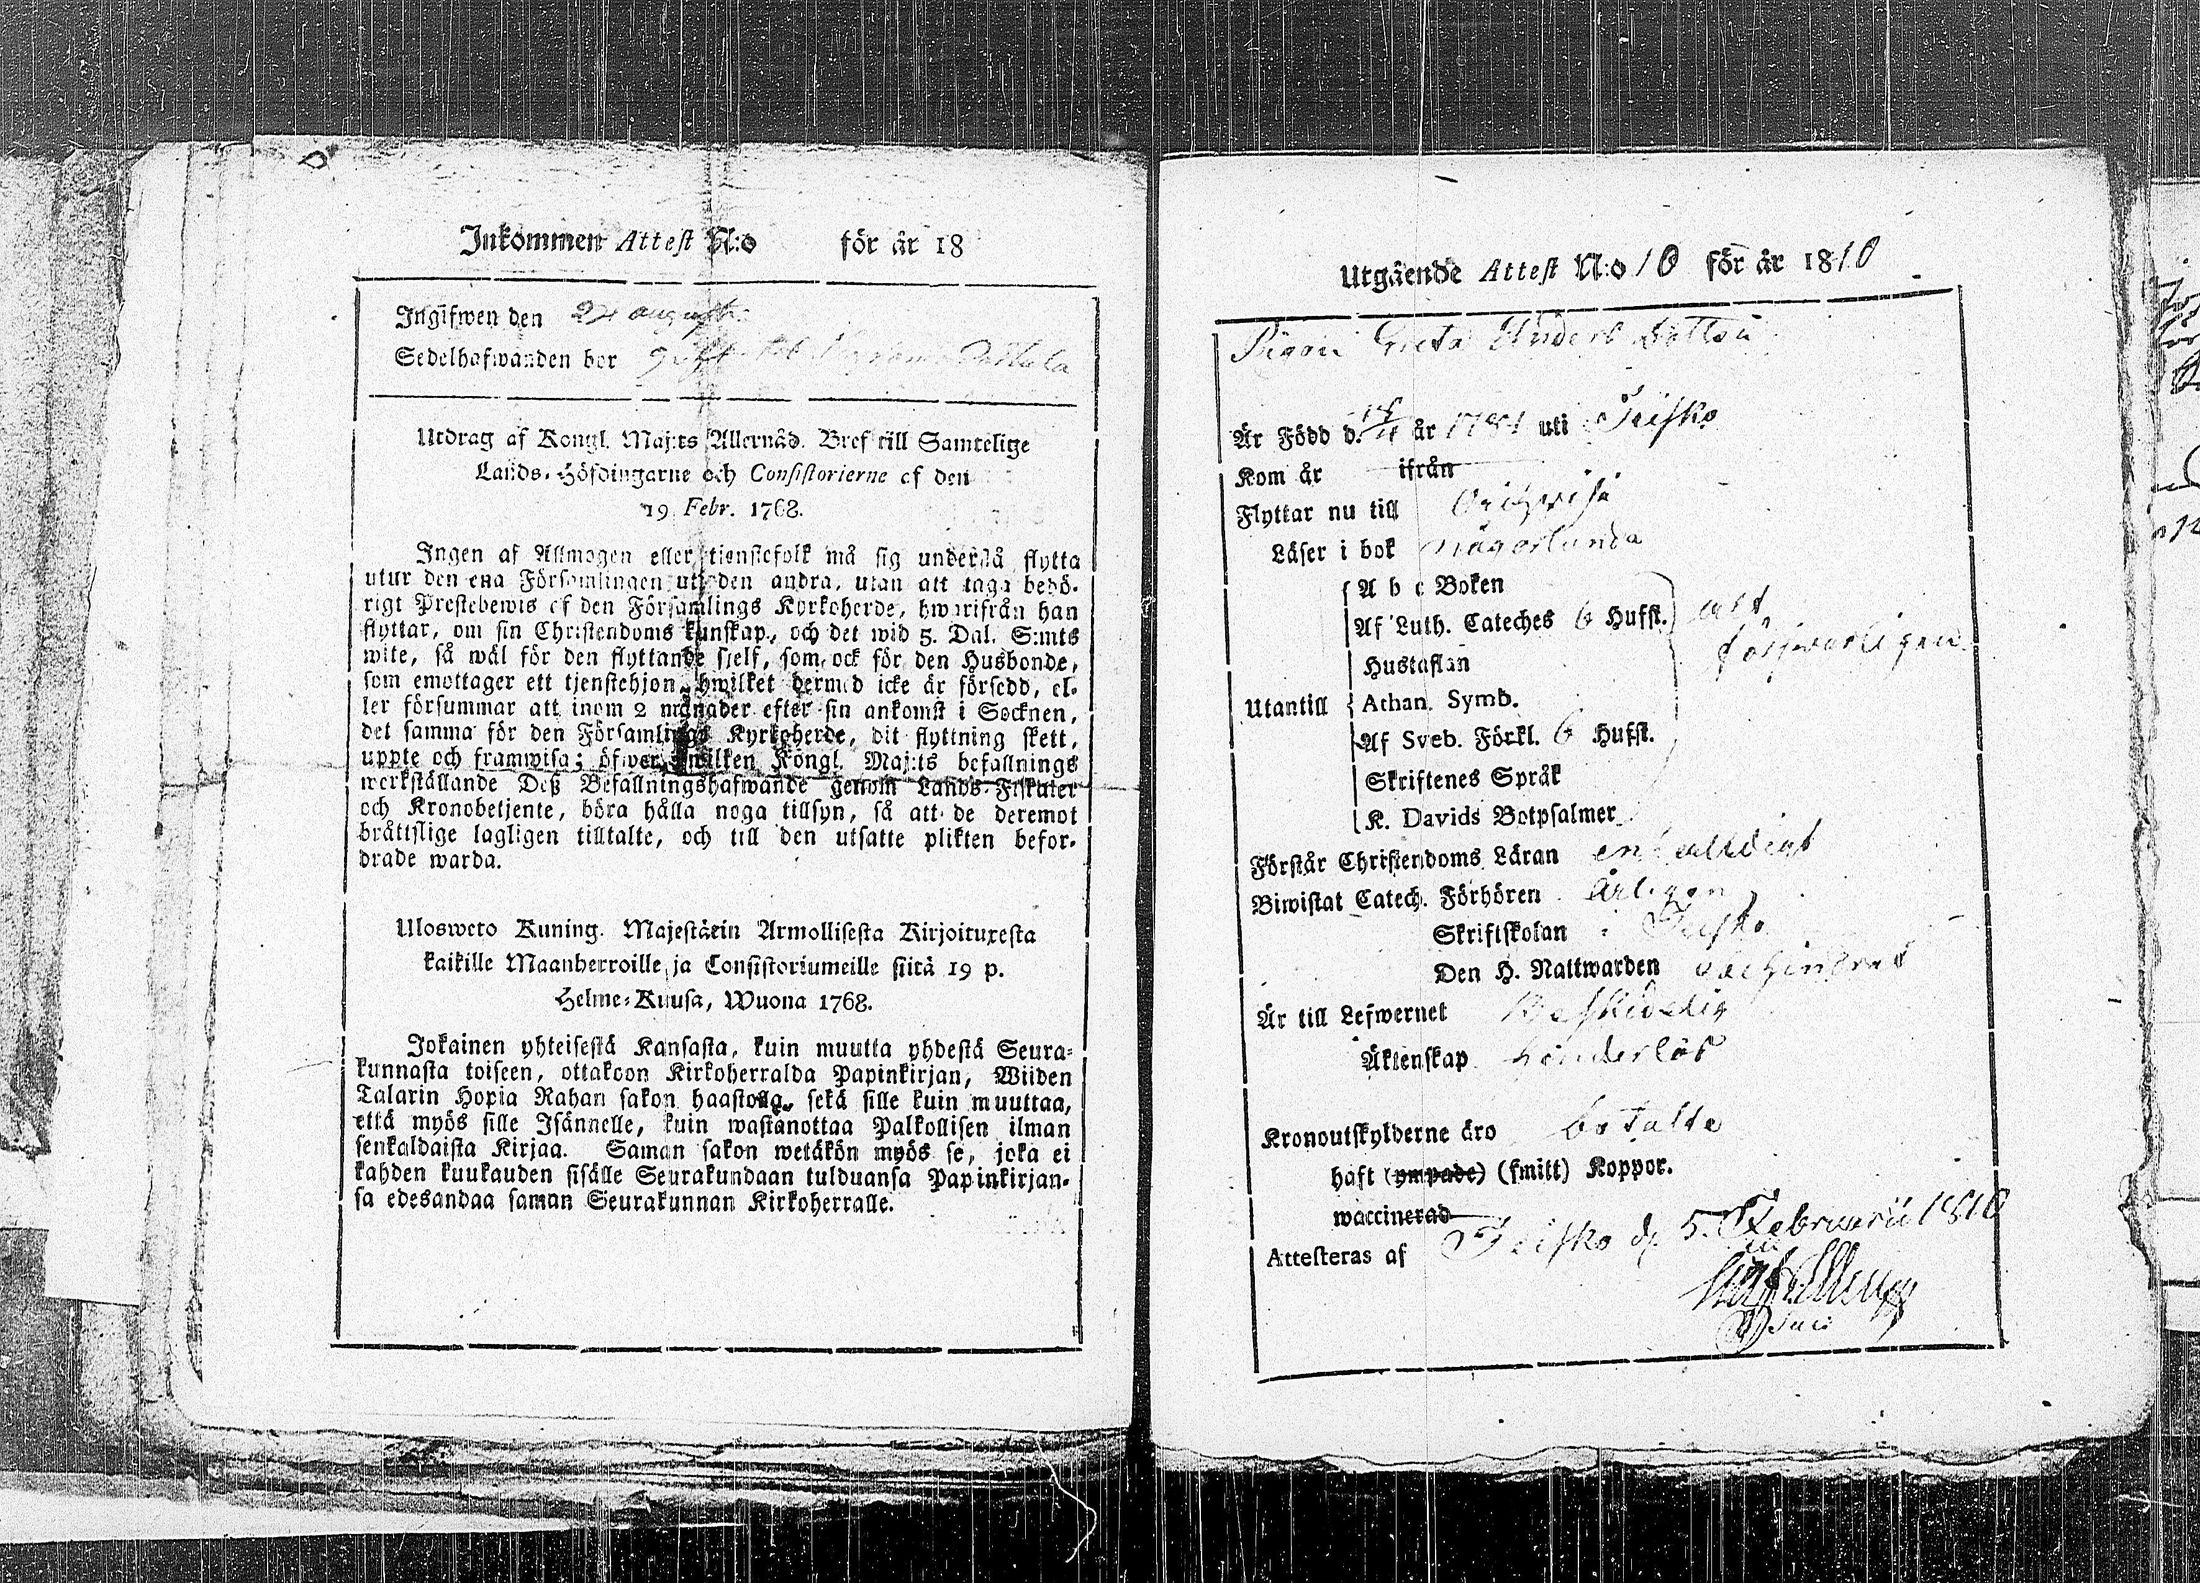 Inkommen Attest N:o för år 18
Ingifwen den 24 augusti
Sedelhafwanden bor
Utdrag af Kongl. Maj:ts Allernåd. Bref till Samtelige
Lands-Höfdingarne och Consistorierne af den
19 Febr. 1768.
Ingen af Allmogen eller tienstefolk må sig understå flytta
utur den ena Församlingen uti den andra, utan att taga behö-
rigt Prestebewis af den Församlings Kyrkoherde, hwarifrån han
flyttar, om sin Christendoms kunskap, och det wid 5. Dal. S:mts
wite, så wäl för den flyttande sjelf, som ock för den Husbonde,
som emottager ett tjenstehjon, hwilket dermed icke är försedd, el-
ler försummar att inom 2 månader efter sin ankomst i Socknen,
det samma för den Församlings Kyrkoherde, dit flyttning skett,
uppte och framwisa; öfwer hwilken Kongl. Maj:ts befallnings
werkställande Deß Befallningshafwande genom Lands-Fiskaler
och Kronobetjente, böra hålla noga tillsyn, så att de deremot
bråttslige lagligen tilltalte, och till den utsatte plikten befor-
drade warda.
Ulosweto Kuning. Majestätin Armollisesta Kirjoituxesta
kaikille Maanherroille ja Consistoriumeille siitä 19 p.
Helme-Kuusa, Wuona 1768.
Jokainen yhteisestä Kansasta, kuin muutta yhdestä Seura-
kunnasta toiseen, ottakoon Kirkoherralda Papinkirjan, Wiiden
Talarin Hopia Rahan sakon haastolla, sekä sille kuin muuttaa,
että myös sille Isännelle, kuin wastanottaa Palkollisen ilman
senkaldaista Kirjaa. Saman sakon wetäkön myös se, joka ei
kahden kuukauden sisälle Seurakundaan tulduansa Papinkirjan-
sa edesandaa saman Seurakunnan Kirkoherralle.
Utgående Attest N:o 10 för år 1810
Pigan Greta Anders dotter
Är Född d. år 1781 uti Teisko
Kom år ifrån
Flyttar nu till Oriwesi
Läser i bok någorlunda
A b c Boken
Af Luth. Cateches 6 Hufst. alt
Hustaflan förswarligen
Utantill Athan. Symb.
Af Sveb. Förkl. 6 Hufst.
Skriftenes Språk
K. Davids Botpsalmer
Förstår Christendoms Läran enfalldigt
Biwistat Catech. Förhören årligen
Skriftskolan i Teisko
Den H. Nattwarden
Är till Lefwernet beskedelig
Äktenskap hinderlös
Kronoutskylderne äro betalte
haft (ympade) (smitt) Koppor.
waccinerad
Attesteras af Teisko d. 5. Februarii 1810